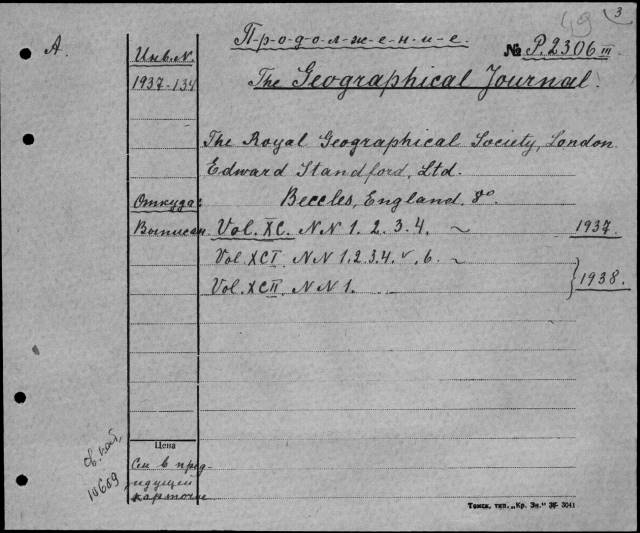 49 3
П-р-о-д-о-л-ж-е-н-и-е.
А.
Инв. N.
№ P.2306 III
1937-134
The Geographical Journal.
The Royal Geographical Society, London
Edward Standford, Ltd.
Откуда:
Beccles, England, 8°
Выписан.
Vol. XC. NN 1. 2. 3. 4. ~ 1937.
Vol. XCI. NN 1. 2. 3. 4. v. 6. ~
Vol. XCII. NN 1.
1938.
Цена
См в пред-
идущей
карточке
св. кат.
10689
Томск, тип. „Кр. Зн." 3041